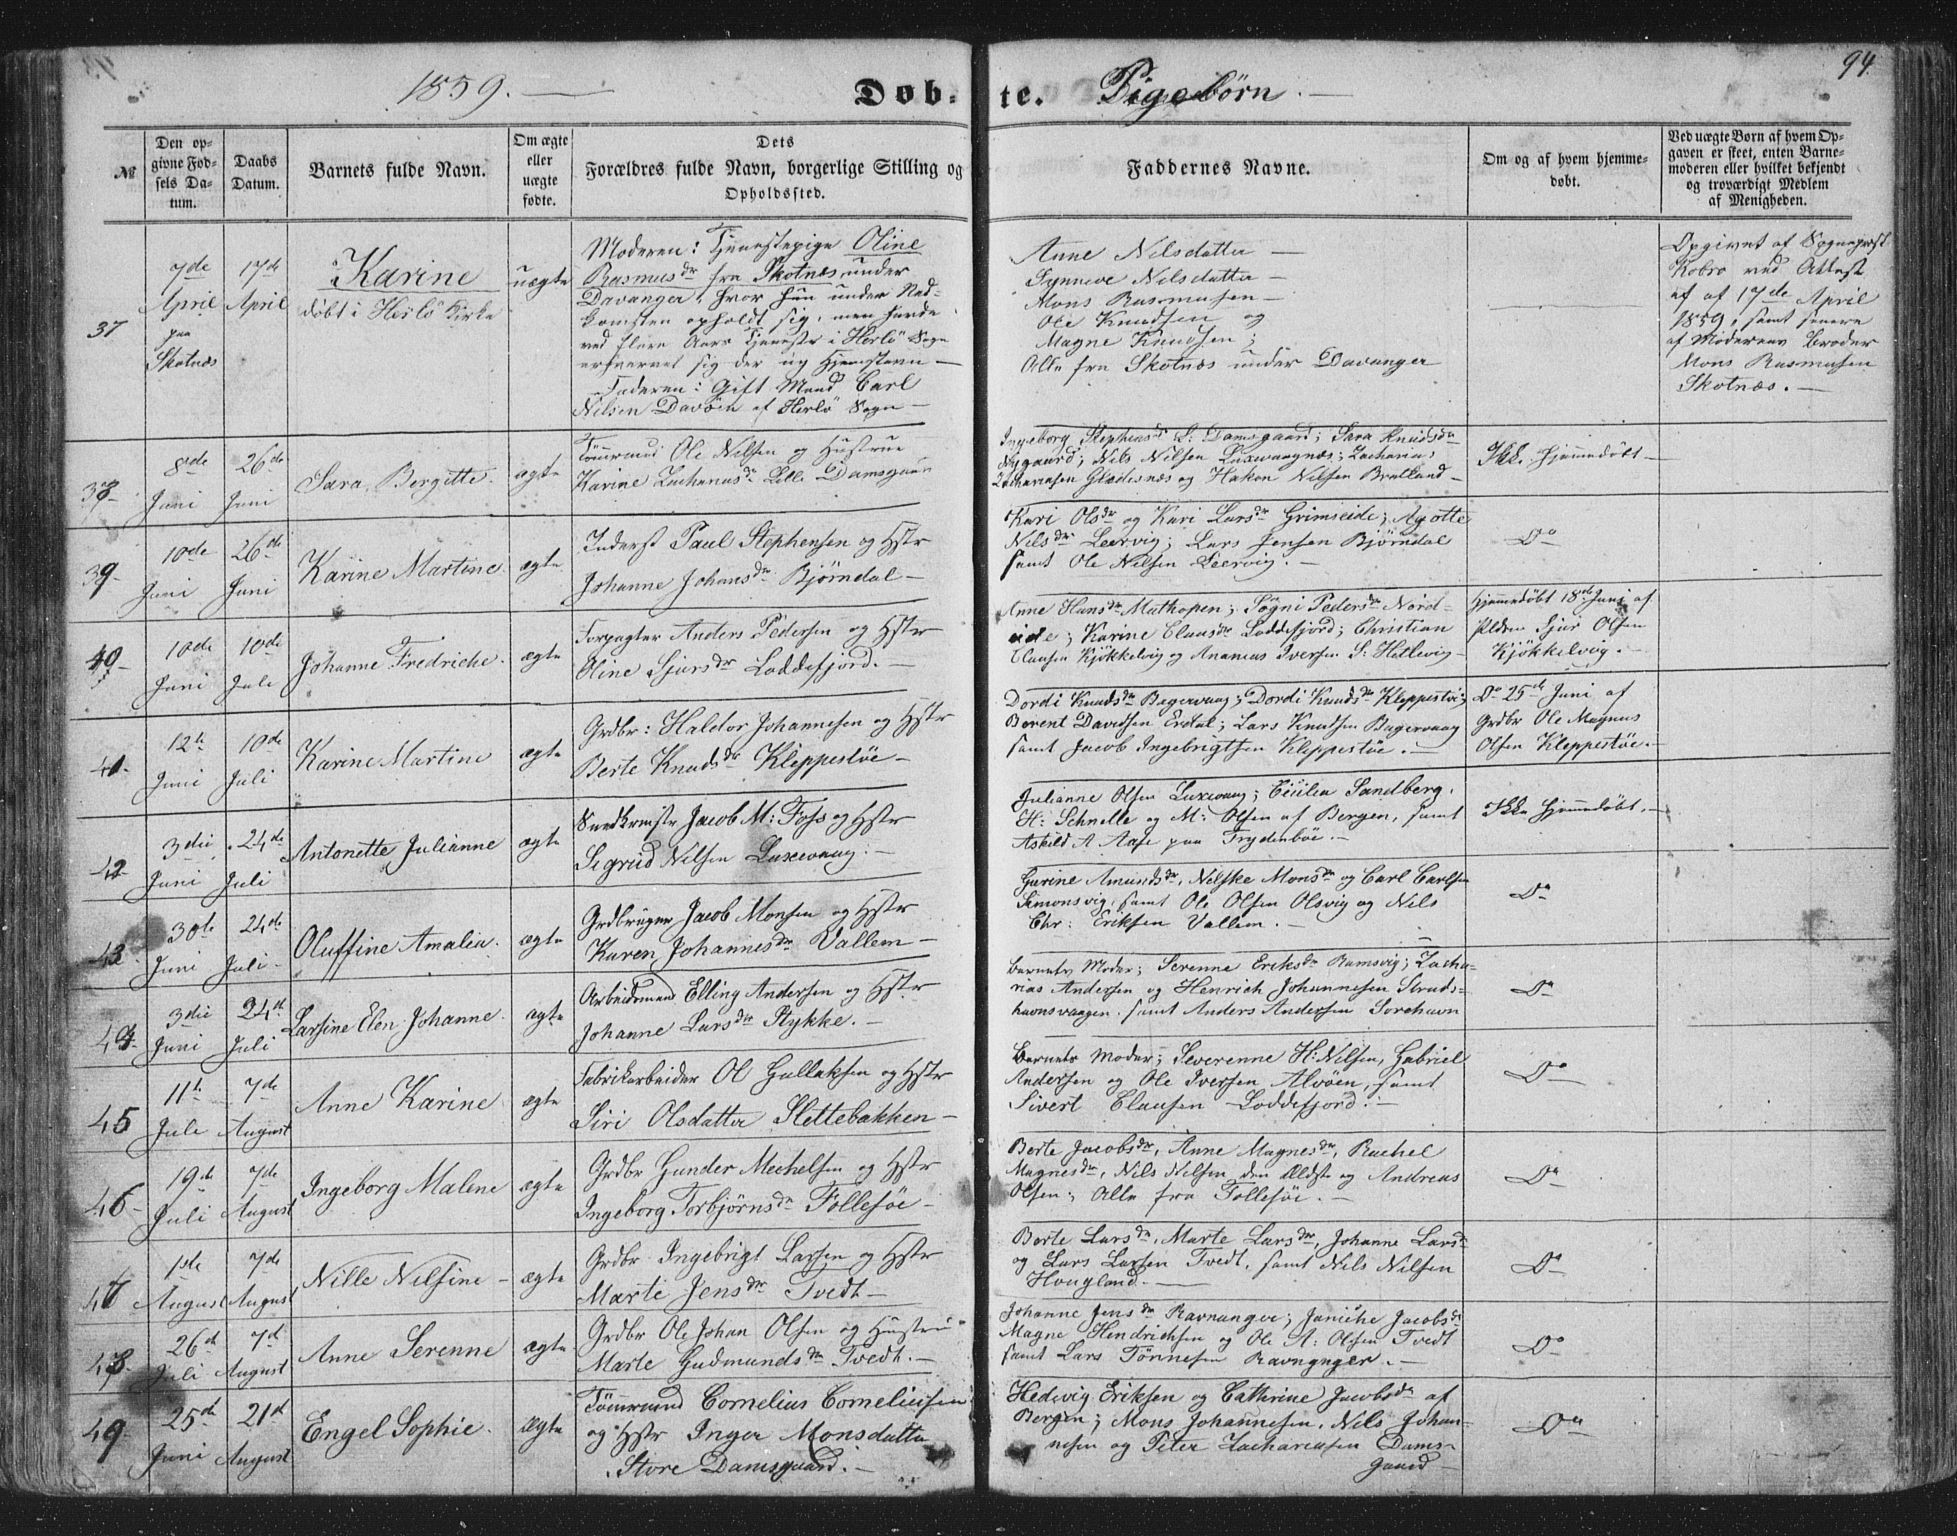 94
1859. —
Døb- te. Pigebørn. —
№
Den op-
givne Fød-
sels Da-
tum.
Daabs
Datum.
Barnets fulde Navn.
Om ægte
eller
uægte
fødte.
Dets
Forældres fulde Navn, borgerlige Stilling og
Opholdssted.
Faddernes Navne.
Om og af hvem hjemme-
døbt.
Ved uægte Børn af hvem Op-
gaven er skeet, enten Barne-
moderen eller hvilket bekjendt
og troværdigt Medlem
af Menigheden.
37
7de
April
paa
Skotnæs
17de
April
Karine
døbt i Herlö Kirke
uægte
Moderen: Tjenestepige Oline
Rasmusdr fra Skotnæs under
Davanger, hvor hun under Ned-
komsten opholdt sig, men havde
ved flere Aars Tjeneste i Herlö Sogn
erhvervet sig der ny Hjemstavn —
Faderen: Gift Mand Carl
Nilsen Davöen af Herlö Sogn —
Anne Nilsdatter —
Synneve Nilsdatter —
Mons Rasmusen —
Ole Knudsen og
Magne Knudsen;
Alle fra Skotnæs under Davanger
Opgivet af Sognepræst
Kobro ved Attest
af 17de April
1859, samt senere
af Moderens Broder
Mons Rasmusen
Skotnæs. —
38
8de
Juni
26de
Juni
Sara Bergitte.
ægte
Tömrmd Ole Nilsen og Hustrue
Karine Zachariasdr Lille Damsgaard
Ingeborg Stephensdr L. Damsgaard; Sara Knudsdr
Nygaard; Nils Nilsen Laxevaagnæs; Zacharias
Zachariasen Gladesnæs og Hakon Nilsen Bratland —
Ikke hjemmedöbt —
39
10de
Juni
26de
Juni
Karine Martine.
ægte
Inderst Paul Stephensen og Hstr
Johanne Johansdr Bjørndal —
Kari Olsdr og Kari Larsdr Grimseide; Agotte
Nilsdr Leervig; Lars Jensen Bjørndal
samt Ole Nilsen Leervig. —
Do
40
10de
Juni
10de
Juli
Johanne Fredriche.
ægte
Forpagter Anders Pedersen og Hstr
Oline Sjursdr Loddefjord. —
Anne Hansdr Mathopen; Sögni Pedersdr Nord-
eide; Karine Clausdr Loddefjord; Christian
Clausen Kjökkelvig og Ananias Iversen S. Hetlevig —
Hjemmedöbt 18de Juni af
Sjur Olsen
Kjökkelvig. —
41
12te
Juni
10de
Juli
Karine Martine
ægte
Grdbr: Haldor Johannesen og Hstr
Berte Knudsdr Kleppestöe —
Dordi Knudsdr Bagervaag; Dordi Knudsdr Kleppestöe;
Berent Davidsen Erdal; Lars Knudsen Bagervaag
samt Jacob Ingebrigtsen Kleppestöe. —
Do 25de Juni af
Grdbr Ole Magnus
Olsen Kleppestöe. —
42
3die
Juni
24de
Juli
Antonette Julianne
ægte
Snedkermstr Jacob M: Foss og Hstr
Sigrid Nilsen Laxevaag. —
Julianne Olsen Laxevaag; Cecilia Sandberg,
H: Schnelle og M: Olsen af Bergen, samt
Askild A Aase paa Frydenböe. —
Ikke hjemmedöbt. —
43
30te
Juni
24de
Juli
Oluffine Amalia.
ægte
Grdbruger Jacob Monsen og Hstr
Karen Johannesdr Vallem —
Gurine Amundsdr, Nilske Monsdr og Carl Carlsen
Simonsvig, samt Ole Olsen Olsvig og Nils
Chr: Eriksen Vallem. —
Do
44
3die
Juni
24de
Juli
Larsine Elen Johanne.
ægte
Arbeidsmand Elling Andersen og Hstr
Johanne Larsdr Stykke. —
Barnets Moder; Serenne Eriksdr Ramsvig; Zacha-
rias Andersen og Henrich Johannesen Struds-
havnsvaagen, samt Anders Andersen Sorehavn
Do
45
11te
Juli
7de
August
Anne Karine
ægte
Fabrikarbeider Ol Gullaksen og Hstr
Siri Olsdatter Slettebakken —
Barnets Moder; Severenne H: Nilsen, Gabriel
Andersen og Ole Iversen Alvöen, samt
Sivert Clausen Loddefjord. —
Do
46
19de
Juli
7de
August
Ingeborg Malene
ægte
Grdbr Gunder Mechelsen og Hstr
Ingeborg Torbjörnsdr Follesöe —
Berte Jacobsdr, Anne Magnesdr, Rachel
Magnesdr, Nils Nilsen den Ældste og Andreas
Olsen; Alle fra Follesöe. —
Do
47
1ste
August
7de
August
Nille Nilsine —
ægte
Grdbr Ingebrigt Larsen og Hstr
Marte Jensdr Tvedt —
Berte Larsdr, Marte Larsdr, Johanne Larsdr
og Lars Larsen Tvedt, samt Nils Nilsen
Hougland. —
Do
48
26de
Juli
7de
August
Anne Serenne
ægte
Grdbr Ole Johan Olsen og Hustru
Marte Gudmundsdr Tvedt. —
Johanne Jensdr Ravnanger; Janiche Jacobsdr
Magne Hendrichsen og Ole A: Olsen Tvedt
samt Lars Tönnesen Ravnanger. —
Do
49
25de
Juni
21de
August
Engel Sophie.
ægte
Tömrmand Cornelius Corneliusen
og Hstr Inger Monsdatter
Store Damsgaard. —
Hedevig Eriksen og Cathrine Jacobsdr af
Bergen; Mons Johannesen, Nils Johan-
nesen og Peter Zachariasen Dams-
gaard —
Do